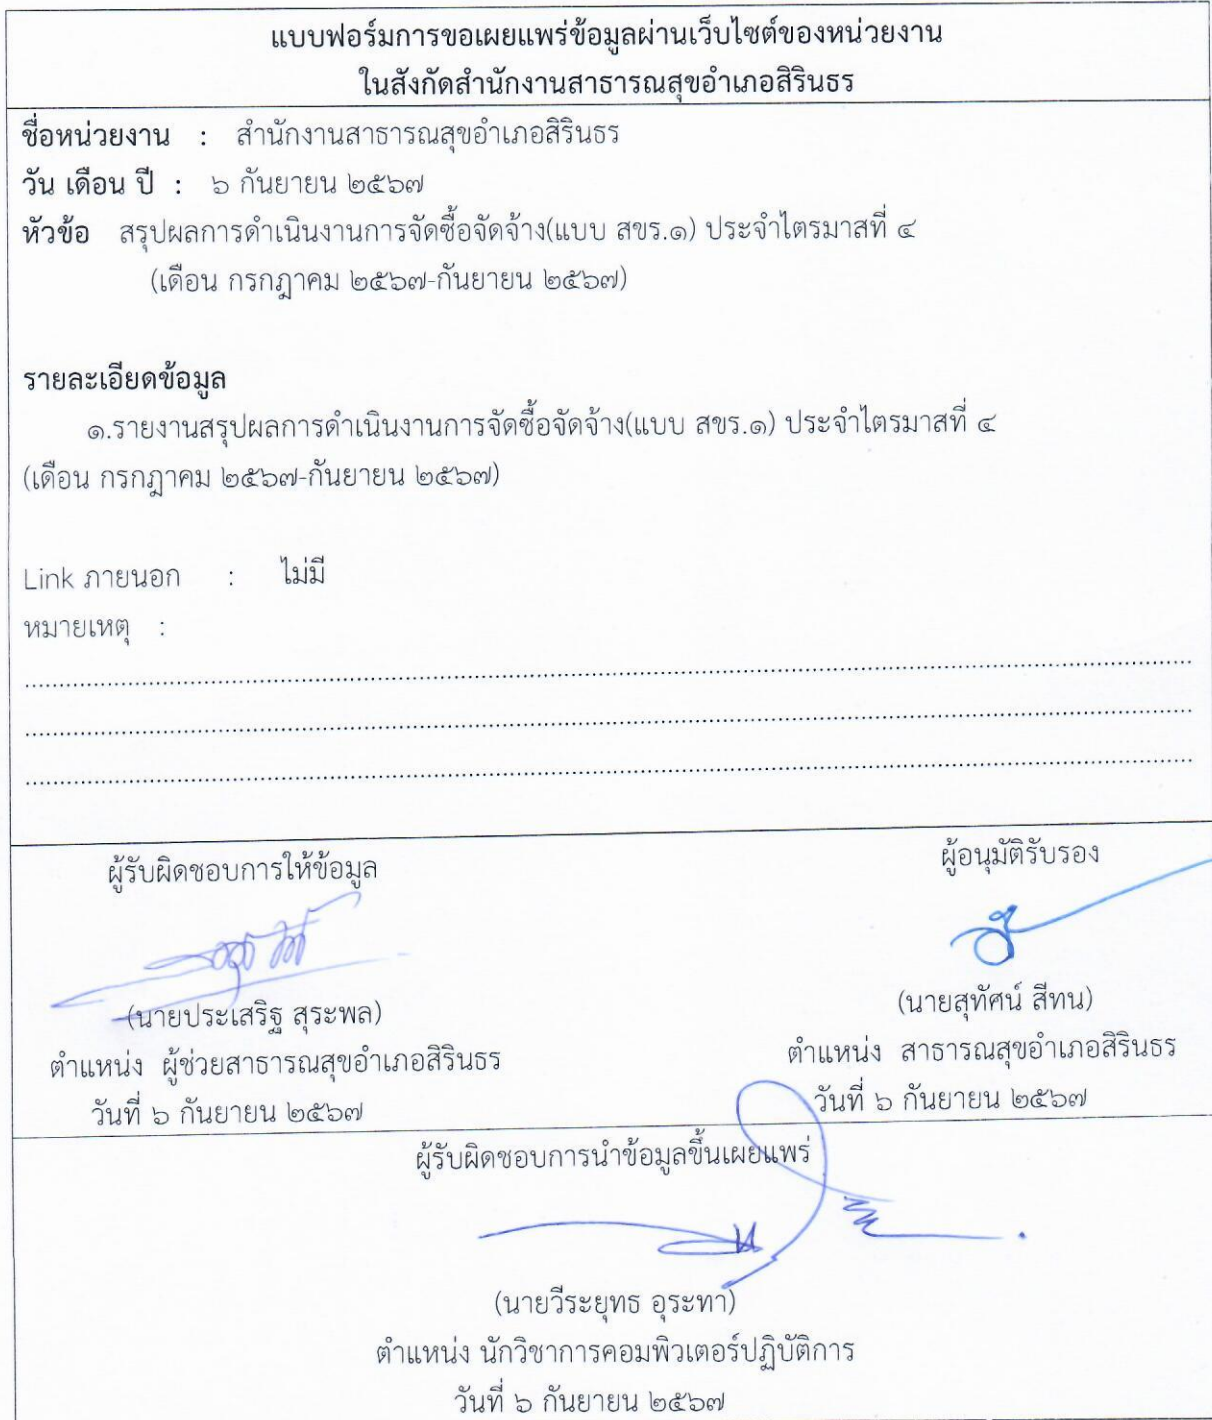 แบบฟอร์มการขอเผยแพร่ข้อมูลผ่านเว็บไซต์ของหน่วยงาน
ในสังกัดสำนักงานสาธารณสุขอำเภอสิรินธร
ชื่อหน่วยงาน : สำนักงานสาธารณสุขอำเภอสิรินธร
วัน เดือน ปี : ๖ กันยายน ๒๕๖๗
หัวข้อ สรุปผลการดำเนินงานการจัดซื้อจัดจ้าง(แบบ สขร.๑) ประจำไตรมาสที่ ๔
(เดือน กรกฎาคม ๒๕๖๗-กันยายน ๒๕๖๗)
รายละเอียดข้อมูล
๑.รายงานสรุปผลการดำเนินงานการจัดซื้อจัดจ้าง(แบบ สขร.๑) ประจำไตรมาสที่ ๔
(เดือน กรกฎาคม ๒๕๖๗-กันยายน ๒๕๖๗)
Link ภายนอก : ไม่มี
หมายเหตุ :
ผู้รับผิดชอบการให้ข้อมูล
(นายประเสริฐ สุระพล)
ตำแหน่ง ผู้ช่วยสาธารณสุขอำเภอสิรินธร
วันที่ ๖ กันยายน ๒๕๖๗
ผู้อนุมัติรับรอง
(นายสุทัศน์ สีทน)
ตำแหน่ง สาธารณสุขอำเภอสิรินธร
วันที่ ๖ กันยายน ๒๕๖๗
ผู้รับผิดชอบการนำข้อมูลขึ้นเผยแพร่
(นายวีระยุทธ อุระทา)
ตำแหน่ง นักวิชาการคอมพิวเตอร์ปฏิบัติการ
วันที่ ๖ กันยายน ๒๕๖๗